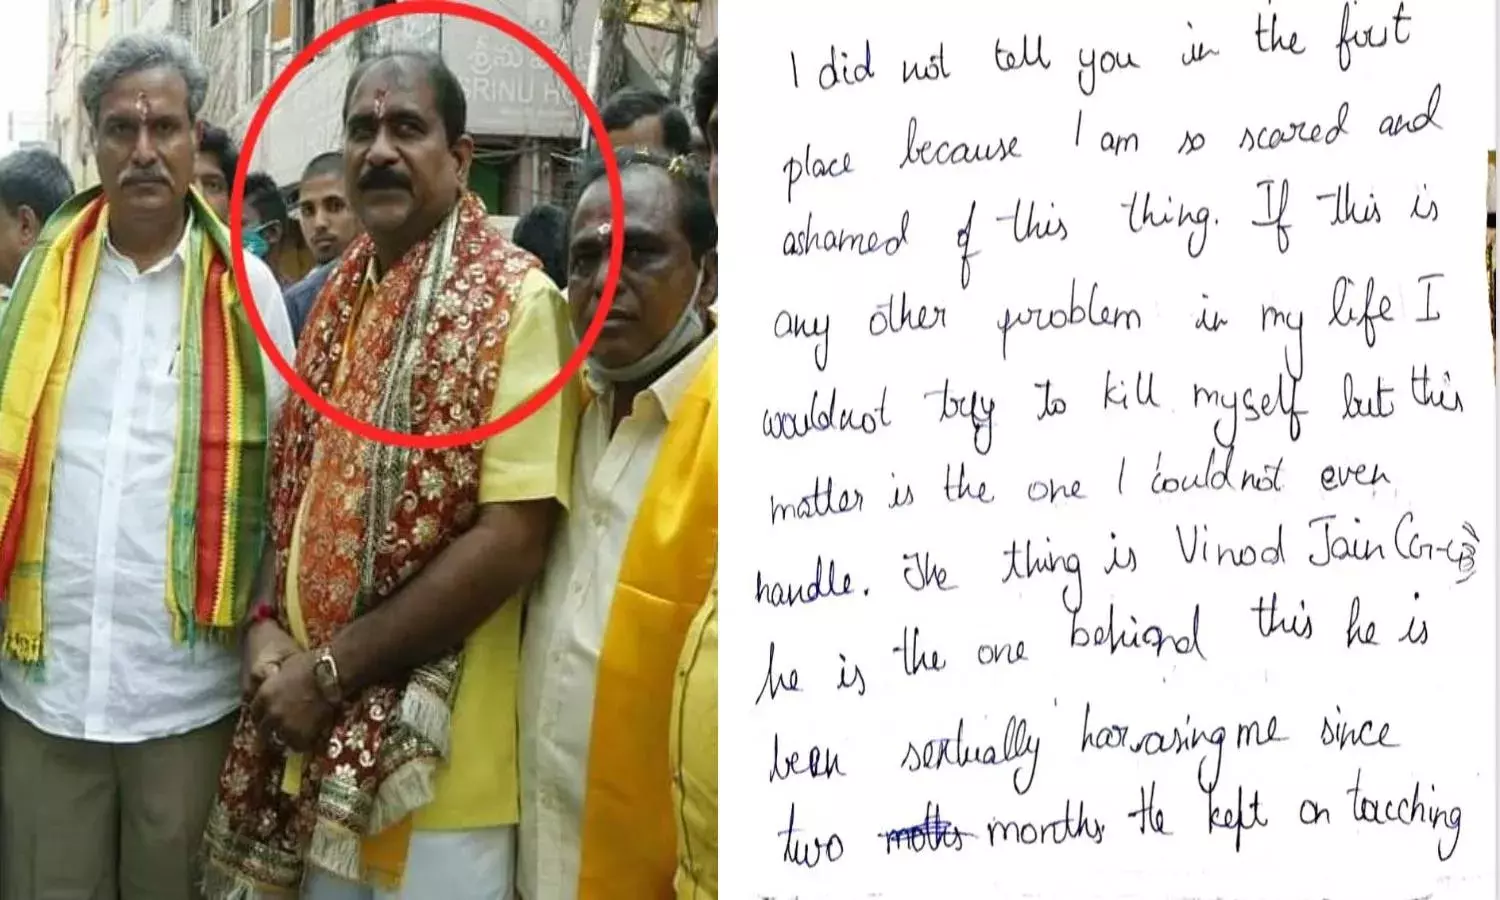 శ్రీను హో
SRINU HO
I did not tell you in the first
place because I am so scared and
ashamed of this thing. If this is
any other problem in my life I
wouldnot try to kill myself but this
matter is the one I couldnot even
handle. The thing is Vinod Jain (G-
he is the one behind this he is
been sextually harrasing me since
two months. He kept on tacching